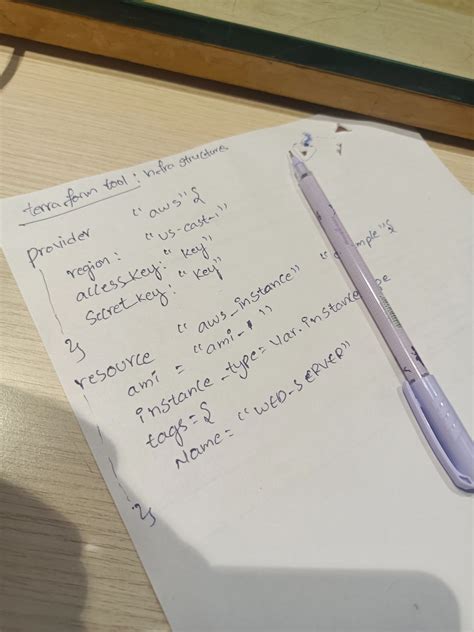 terraform tool: Infra structures
Provider "aws" {
region: "us-east-1"
access key: "key"
secret key: "key"
}
resource "aws_instance" {
ami = "ami-1"
instance_type = var.instance
tags = {
Name = "WED-SERVER"
}